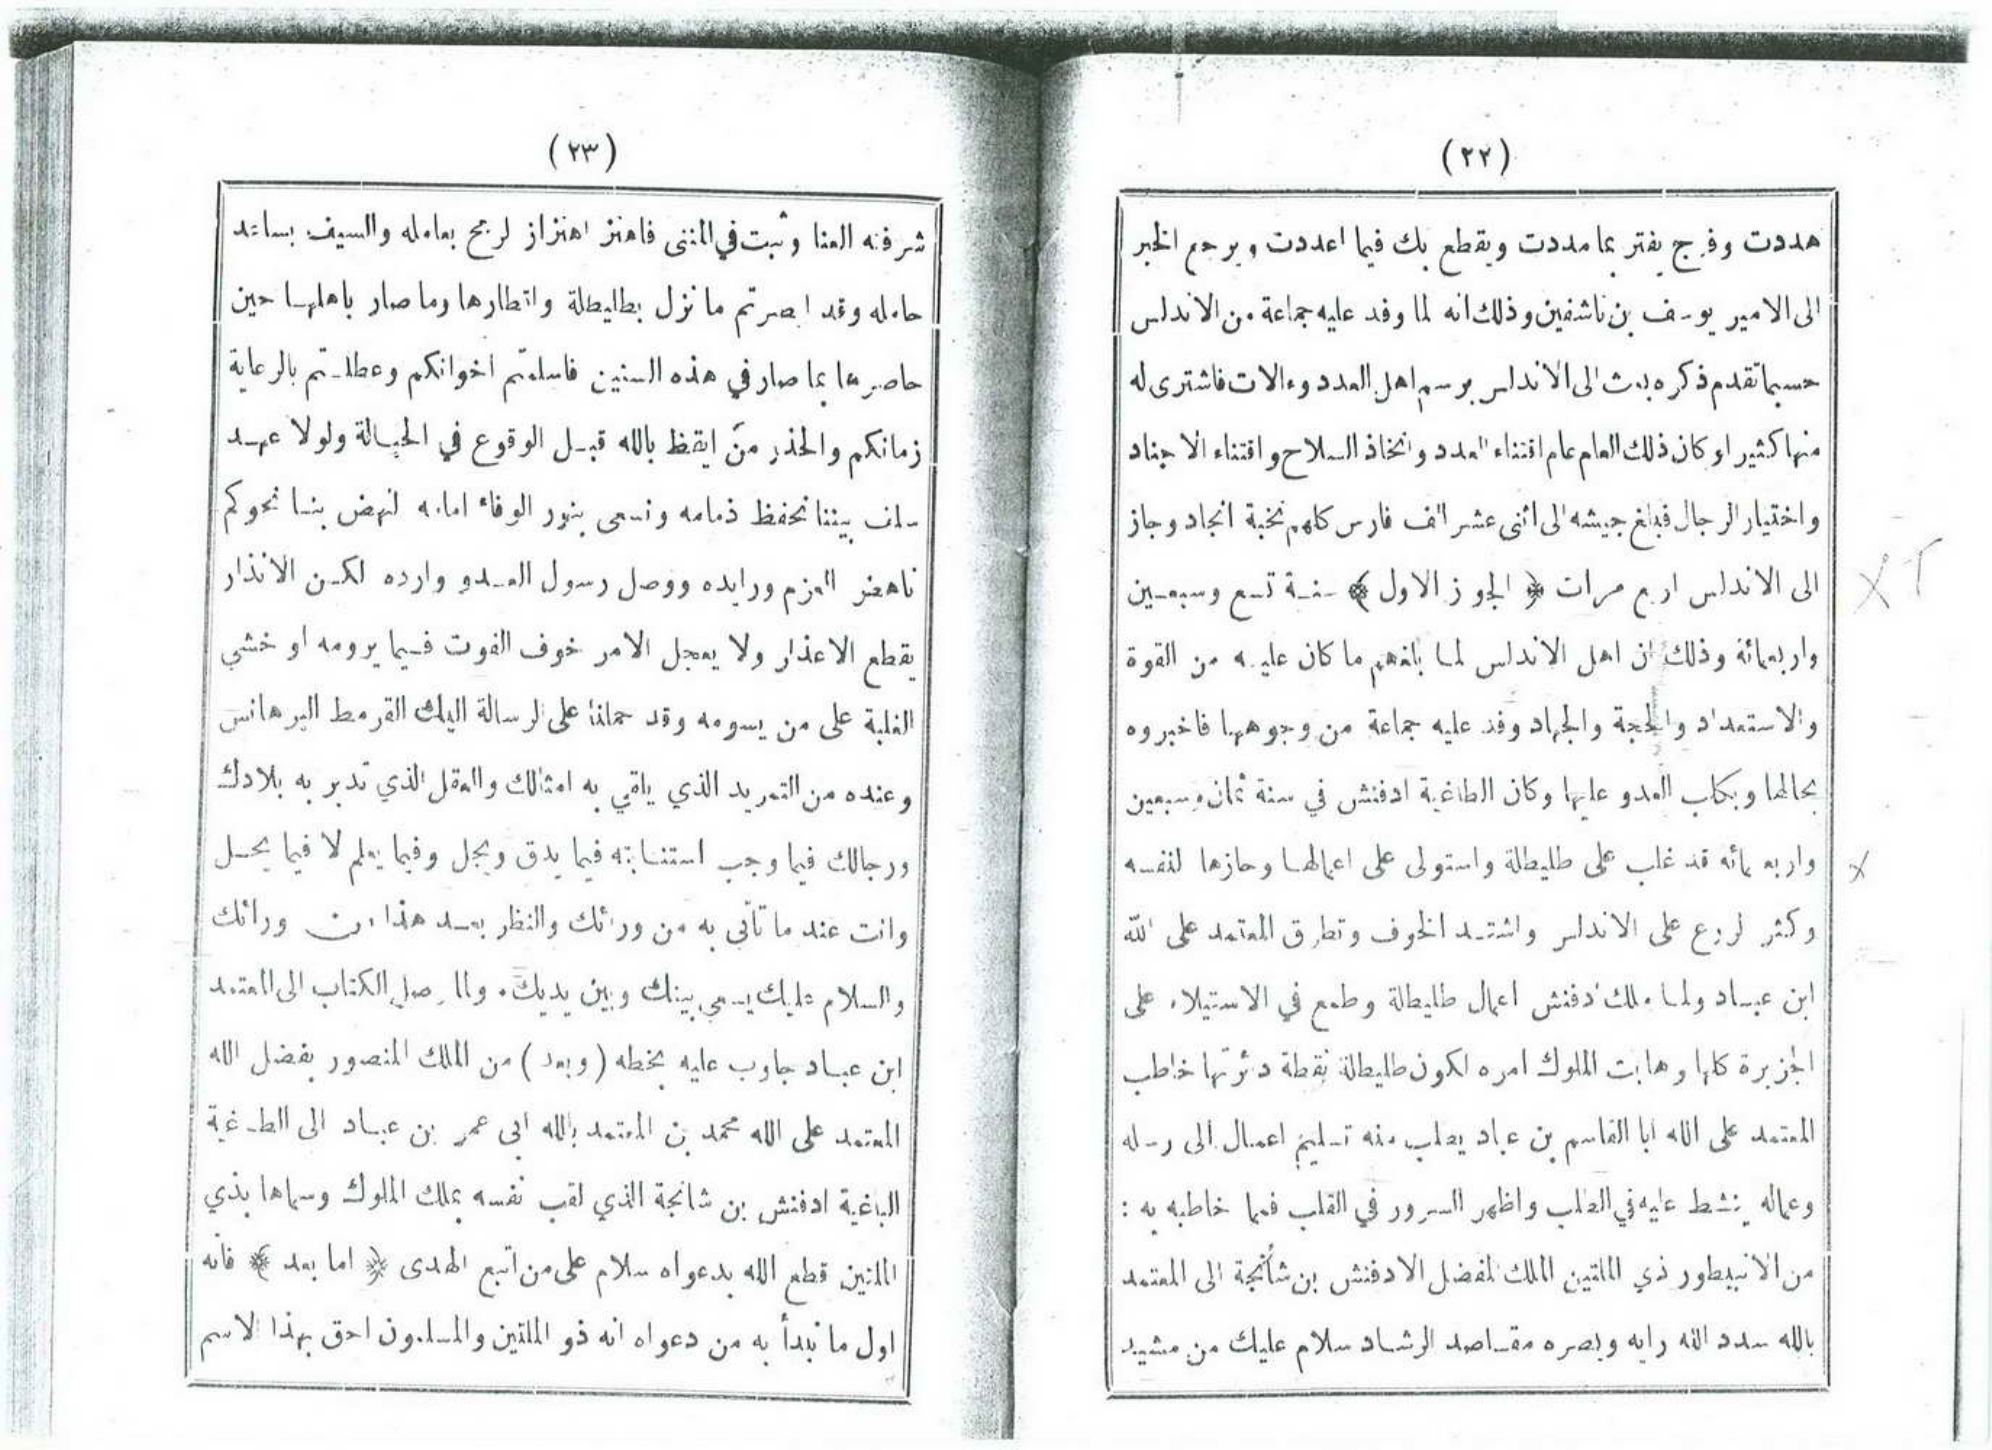 (٢٢)
هددت وفرج يفتر بما مددت ويقطع بك فيما اعددت ويرجع الخبر
الى الامير يوسف بن تاشفين وذلك انه لما وفد عليه جماعة من الاندلس
حسبما تقدم ذكره بعث الى الاندلس برسم اهل العدد وءالات فاشترى له
منها كثيرا وكان ذلك العام عام اقتناء العدد واتخاذ السلاح واقتناء الاجناد
واختيار الرجال فبلغ جيشه الى اثنى عشر الف فارس كلهم نخبة انجاد وجاز
الى الاندلس اربع مرات ﴿ الجوز الاول ﴾ سنة تسع وسبعين
واربعمائة وذلك ان اهل الاندلس لما بلغهم ما كان عليه من القوة
والاستعداد والحجة والجهاد وفد عليه جماعة من وجوهها فاخبروه
بحالها وبكلب العدو عليها وكان الطاغية ادفنش في سنة ثمان وسبعين
واربعمائه قد غلب على طليطلة واستولى على اعمالها وحازها لنفسه
وكثر الروع على الاندلس واشتد الخوف وتطرق المعتمد على الله
ابن عباد ولما ملك ادفنش اعمال طليطلة وطمع في الاستيلاء على
الجزيرة كلها وهابت الملوك امره لكون طليطلة نقطة دئرتها خاطب
المعتمد على الله ابا القاسم بن عباد يطلب منه تسليم اعمال الى رسله
وعماله يشطط عليه في الطلب واظهر السرور في القلب فمما خاطبه به :
من الانبيطور ذي الملتين الملك المفضل الادفنش بن شأنجة الى المعتمد
بالله سدد الله رايه وبصره مقاصد الرشاد سلام عليك من مشيد
(٢٣)
شرفته القنا ونبت في المنى فاهتز اهتزاز الرمح بعامله والسيف بساعد
حامله وقد ابصرتم ما نزل بطليطلة واقطارها وما صار باهلها حين
حاصرها بما صار في هذه السنين فاسلمتم اخوانكم وعطلتم بالرعاية
زمانكم والحذر من ايقظ بالله قبل الوقوع في الحبالة ولولا عهد
سلف بيننا نحفظ ذمامه ونسعى بنور الوفاء امامه لنهض بنا نحوكم
ناهض العزم ورايده ووصل رسول الغدو وارده لكن الانذار
يقطع الاعذار ولا يعجل الامر خوف الفوت فيما يرومه او خشي
الغلبة على من يسومه وقد حملنا على الرسالة اليك القرمط البرهانس
وعنده من التمريد الذي يلقي به امثالك والعقل الذي تدبر به بلادك
ورجالك فيما وجب استنابته فيما يدق ويجل وفيما يعلم لا فيما يحل
وانت عند ما تأتى به من ورائك والنظر بعد هذا من ورائك
والسلام عليك يسعى بينك وبين يديك. ولما وصل الكتاب الى المعتمد
ابن عباد جاوب عليه بخطه (وبعد) من الملك المنصور بفضل الله
المعتمد على الله محمد بن المعتمد بالله ابى عمر بن عباد الى الطاغية
الباغية ادفنش بن شانجة الذي لقب نفسه بملك الملوك وسماها بذي
الملتين قطع الله بدعواه سلام على من اتبع الهدى ﴿ اما بعد ﴾ فأنه
اول ما نبدأ به من دعواه انه ذو الملتين والمسلمون احق بهذا الاسم